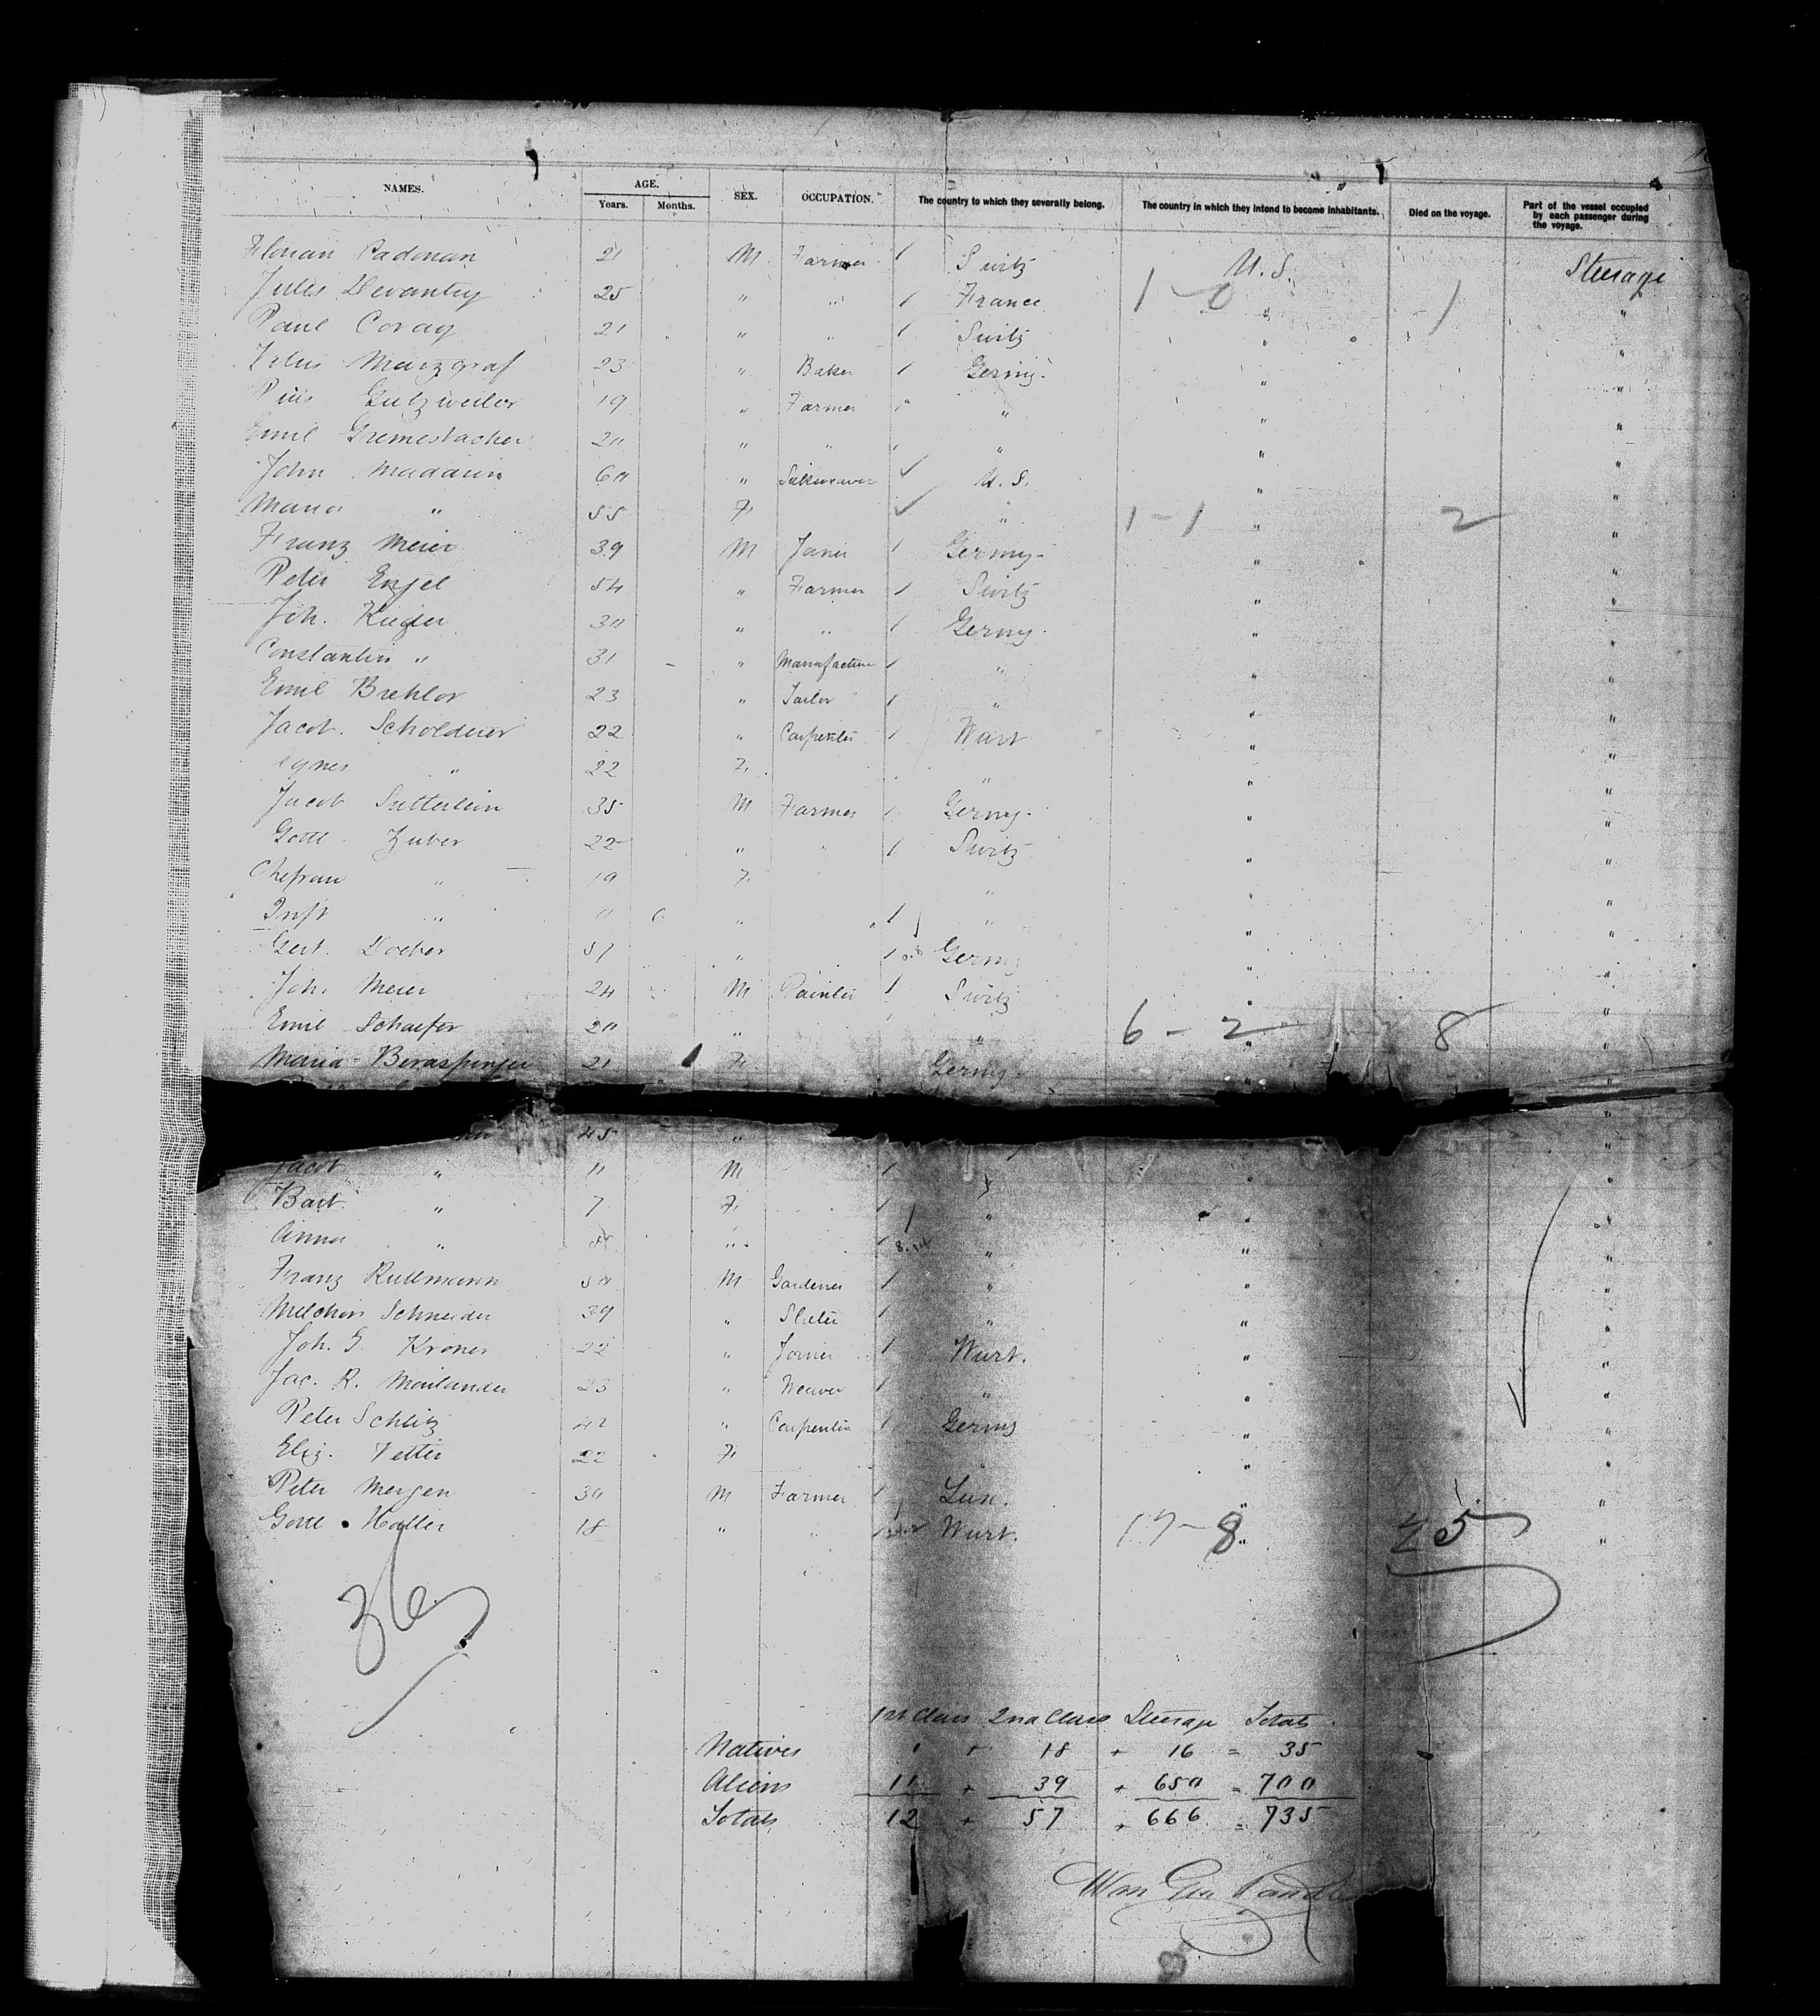 NAMES. AGE. Years. Months. SEX. OCCUPATION. The country to which they severally belong. The country in which they intend to become inhabitants. Died on the voyage. Part of the vessel occupied by each passenger during the voyage.
Florian Cadonau 21 M Farmer / Switz U.S. Steerage
Jules Devantry 25 " " / France " 1-0 1 "
Paul Coray 21 " " / Switz " "
Marzgraf 23 " Baker / Germy. " "
Pius Gutzweiler 19 " Farmer " " " "
Emil 20 " " " " " "
John 60 " Silkweaver ✓ U.S. " "
Maria " 55 F. ✓ " 1-1 " 2 "
Franz Meier 39 M Joiner / Germy- " "
Peter Engel 54 " Farmer / Switz " "
Joh. Kieger 30 " " / Germy. " "
Constantin " 31 - " Manufacture / " " "
Emil Brehler 23 " Tailor / " " "
Jacob. Scholderer 22 " Carpenter / Wurt " "
Agnes " 22 F. " " "
Jacob Sutterlein 35 M Farmer / Germy- " "
Gottl. Zuber 22 " " / Switz " "
Chefrau " 19 F. " " "
Inft " 0 6 " / " " "
Gert. Doeber 51 " / Germy " "
Joh. Meier 24 M Painter / Switz " "
Emil Schaefer 20 " " 6-2 " 8 "
Maria 21 F. Germy " "
45 " " "
Jacob " 11 M / " "
Bart. " 7 F. / " " "
Anna " " / 8.14 " " "
Franz Kullmann 50 M Gardener / " " "
Melchior Schneider 39 " Slater / " " "
Joh. G. Kroner 22 " Joiner / Wurt. " "
Jac. R. Mailander 23 " Weaver / " " "
Peter Schlitz 42 " Carpenter / Germy " "
Eliz. Vetter 22 F. " " "
Peter Mergen 30 M Farmer / Lux. " "
Gottl. Haller 18 " " / Wurt. 17-8 " 25 "
36
1st Class 2nd Class Steerage Totals
Natives 1 + 18 + 16 = 35
Aliens 11 + 39 + 650 = 700
Totals 12 + 57 + 666 = 735
Wm Geo